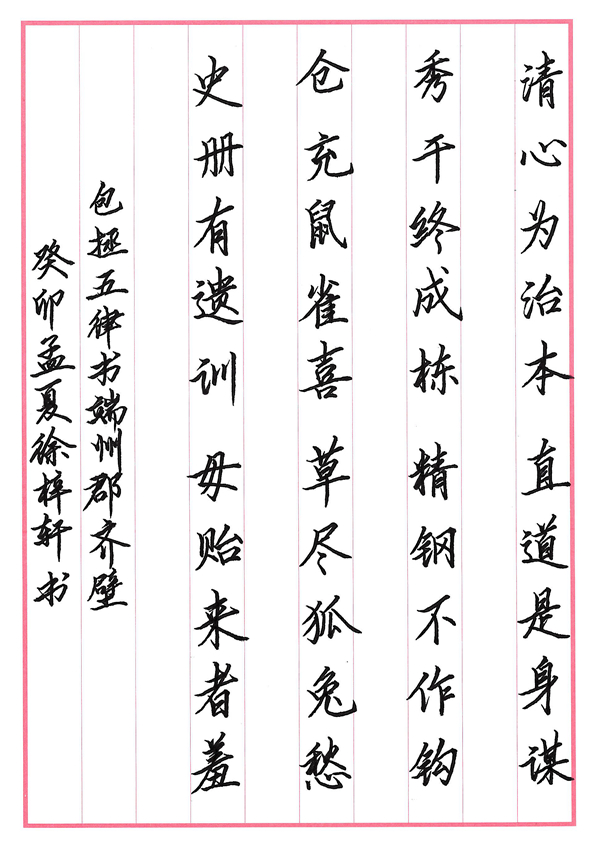 清心为治本 直道是身谋
秀干终成栋 精钢不作钩
仓充鼠雀喜 草尽狐兔愁
史册有遗训 毋贻来者羞
包拯五律书端州郡齐壁
癸卯孟夏徐梓轩书